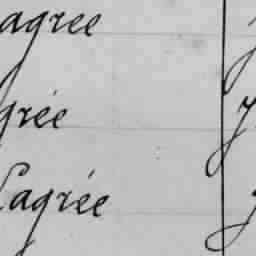 agree
grée
Lagrée